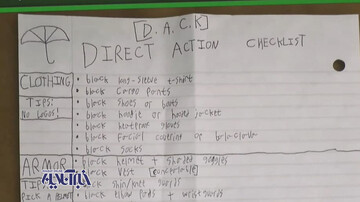 [D.A.C.K]
DIRECT ACTION CHECKLIST
CLOTHING
TIPS:
NO LOGOS!
• black long-sleeve t-shirt
• black Cargo Pants
• black Shoes or boots
• black hoodie or hooded jacket
• black gloves
• black Facial covering or balaclava
• black socks
ARMOR
TIPS
• black helmet + shaded goggles
• black vest [concealable]
• black shin/knee guards
• black elbow pads + wrist guards